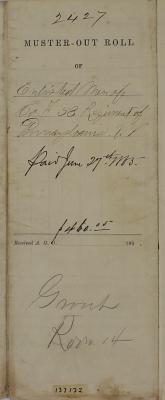 2427.
MUSTER-OUT ROLL
OF
Enlisted Men of
Co. F 58 Regiment of
Pennsylvania
Paid June 27th 1865.
$460.05
Received A. G. O. 186
Grout
Room 14
137172